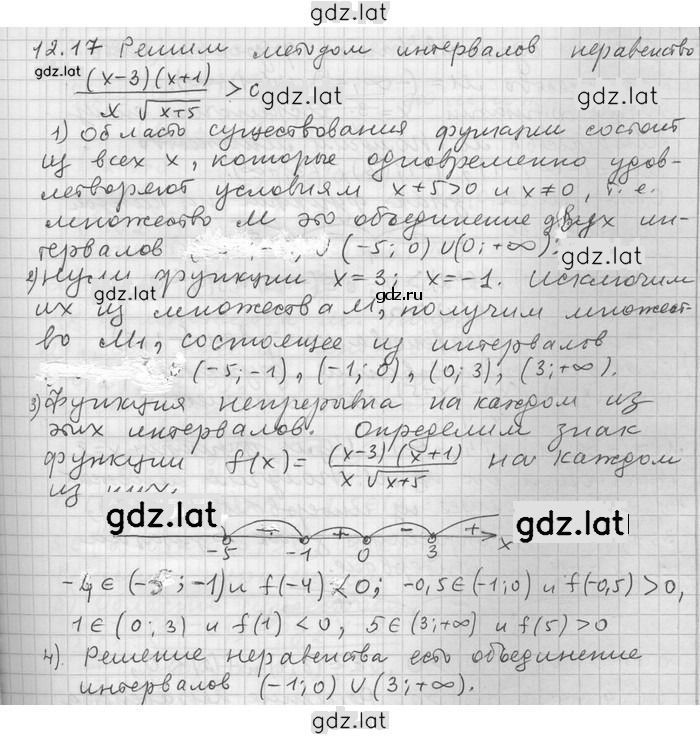 gdz.lat
12.17 Решим методом интервалов неравенство
gdz.lat (x-3)(x+1) / x √x+5 > 0 gdz.lat gdz.lat
1) Область существования функции состоит
из всех x, которые одновременно удов-
летворяют условиям x+5>0 и x≠0, т. е.
множество M это объединение двух ин-
тервалов (-5; 0) ∪ (0; +∞). gdz.lat
2) Нули функции x=3; x=-1. Исключим
gdz.lat gdz.ru
их из множества M, получим множест-
во M1, состоящее из интервалов
(-5; -1), (-1; 0), (0; 3), (3; +∞).
3) Функция непрерывна на каждом из
этих интервалов. Определим знак
функции f(x) = (x-3)(x+1) / x √x+5 на каждом
из
gdz.lat - + - + gdz.lat
-5 -1 0 3 x
-4 ∈ (-5; -1) и f(-4) < 0; -0,5 ∈ (-1; 0) и f(-0,5) > 0,
1 ∈ (0; 3) и f(1) < 0, 5 ∈ (3; +∞) и f(5) > 0
4). Решение неравенства есть объединение
интервалов (-1; 0) ∪ (3; +∞).
gdz.lat